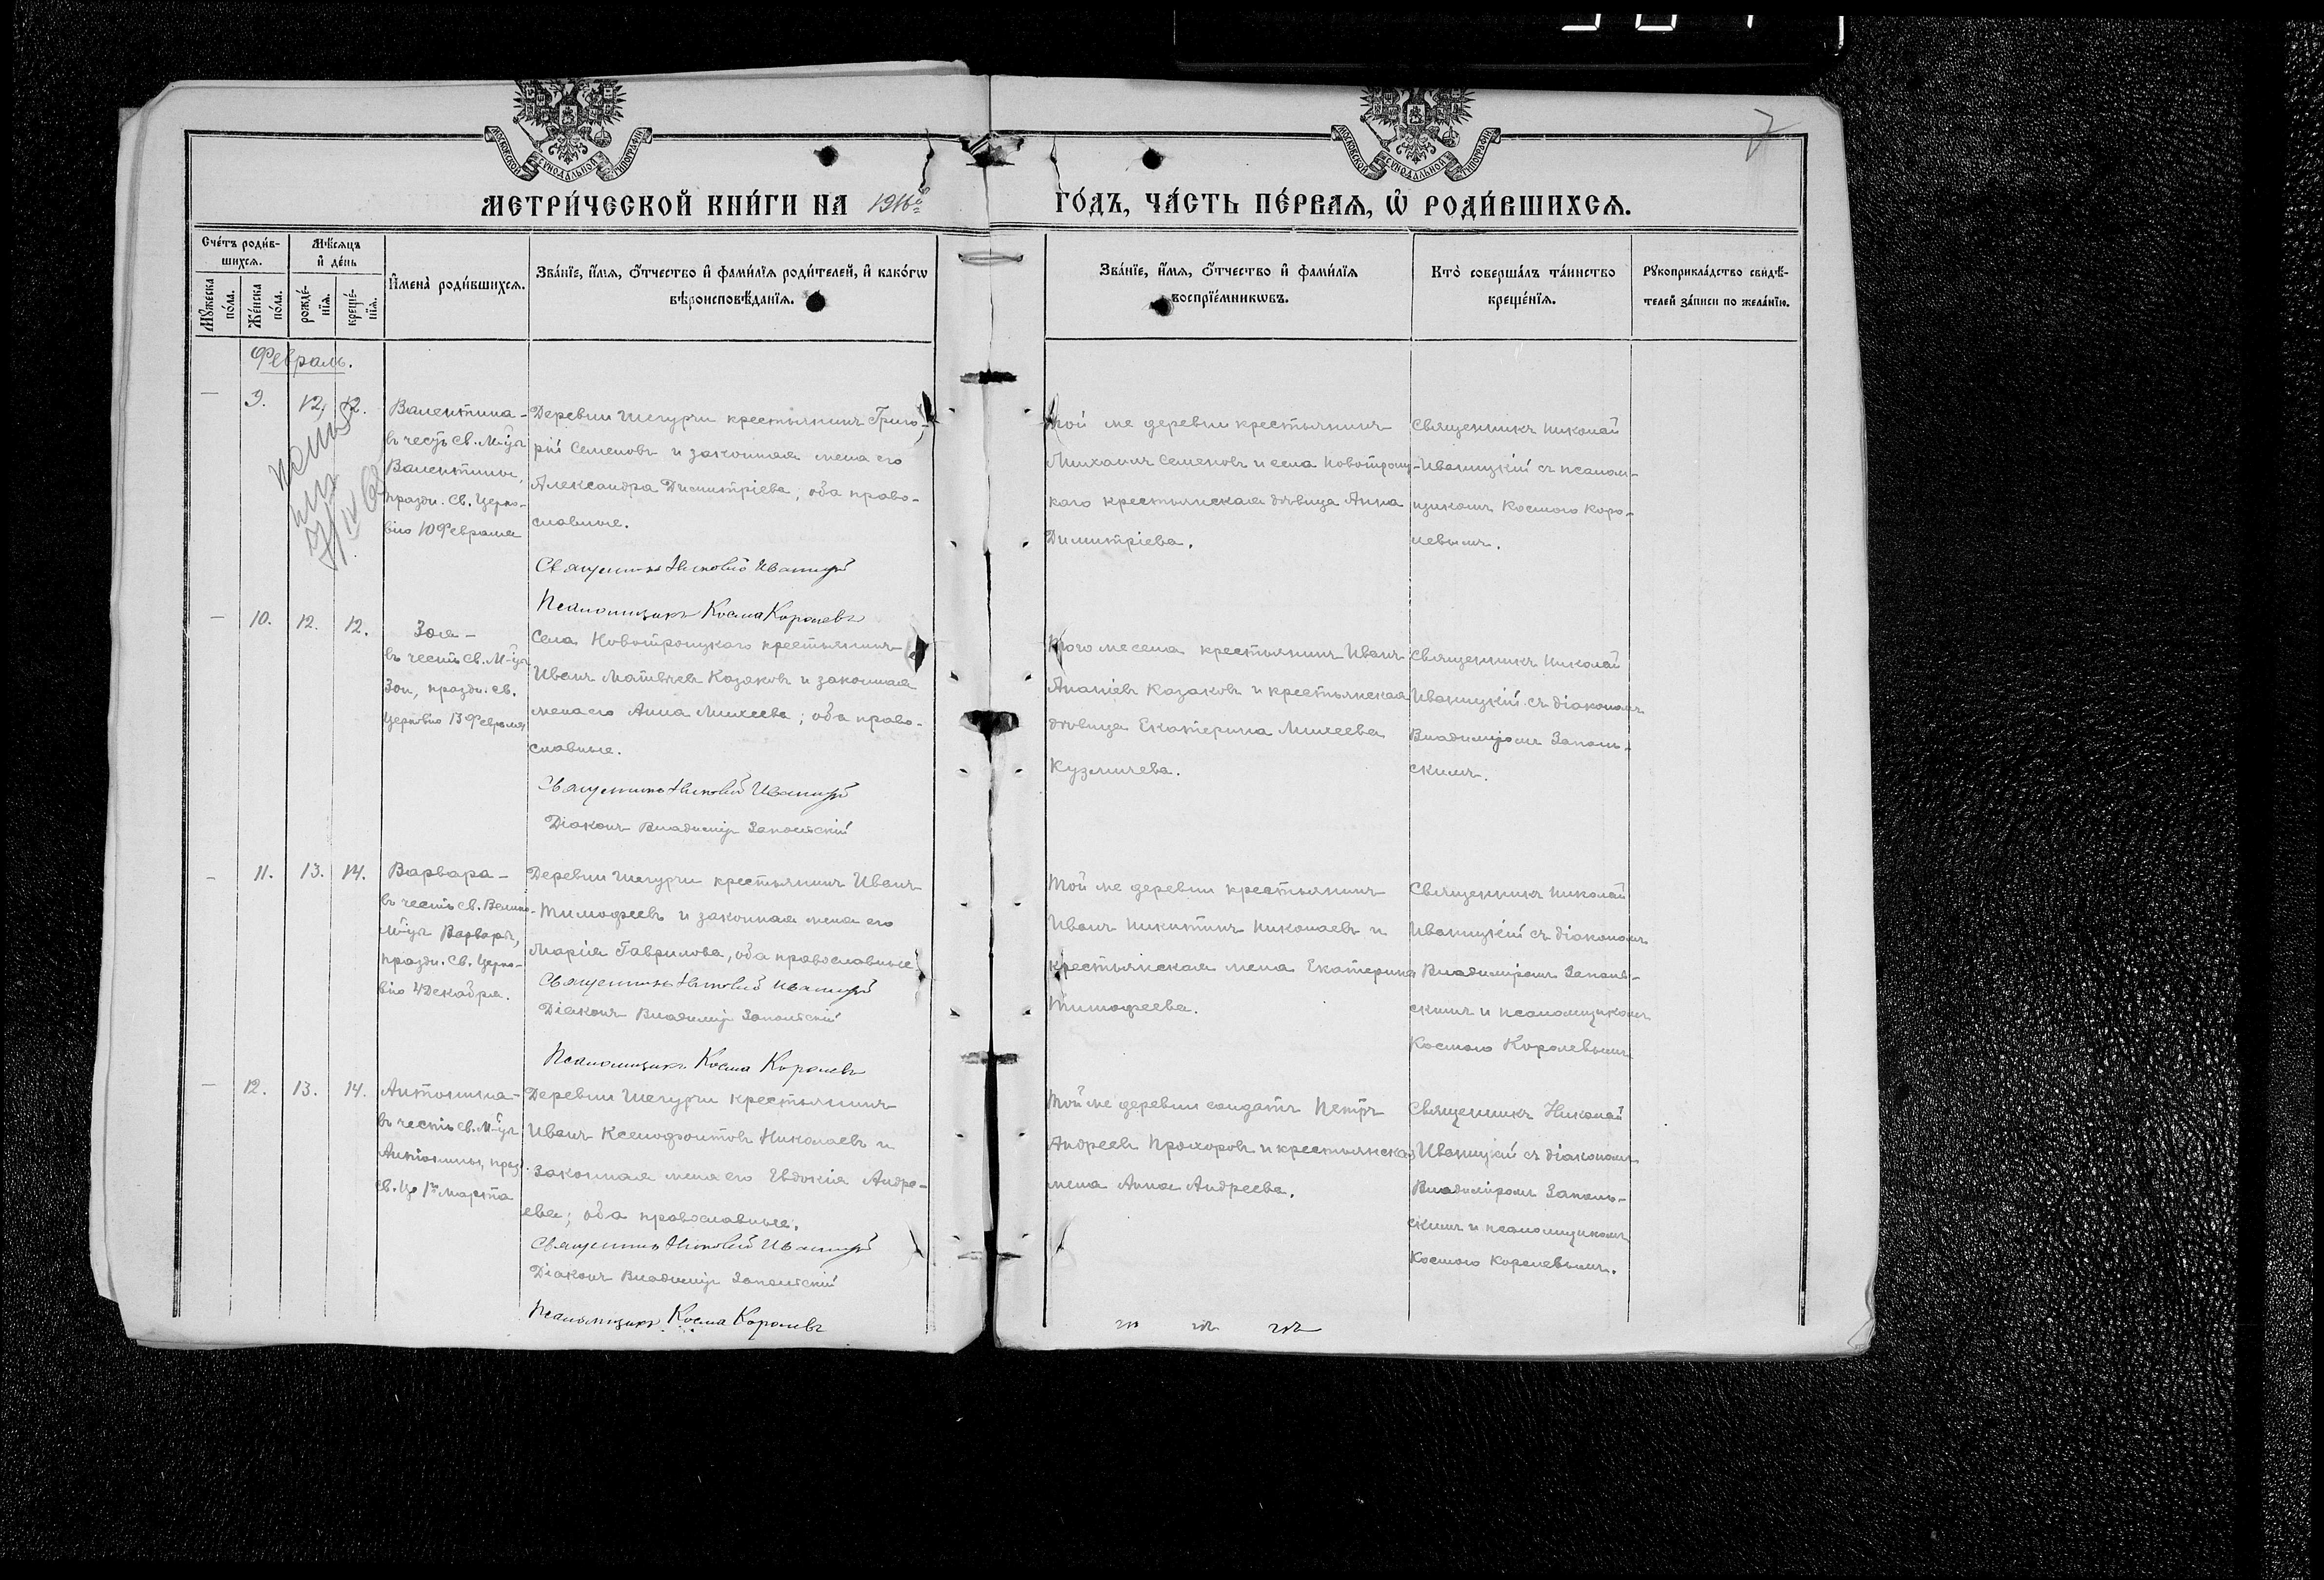 МОСКОВСКОЙ СѴНОДАЛЬНОЙ ТИПОГРАФІИ
МОСКОВСКОЙ СѴНОДАЛЬНОЙ ТИПОГРАФІИ
7
МЕТРИ́ЧЕСКОЙ КНИ́ГИ НА 1916й
ГО́ДЪ, ЧА́СТЬ ПЕ́РВАѦ, Ѡ҆ РОДИ́ВШИХСѦ.
Сче́тъ роди́в-
шихсѧ.
Мѣ́сѧцъ
и҆ де́нь
Мꙋ́жеска
по́ла.
Же́нска
по́ла.
рожде́-
нїѧ.
креще́-
нїѧ.
И҆мена̀ роди́вшихсѧ.
Зва́нїе, и҆́мѧ, ѻ҆́тчество и҆ фами́лїѧ роди́телей, и҆ како́гѡ
вѣроисповѣ́данїѧ.
Зва́нїе, и҆́мѧ, ѻ҆́тчество и҆ фами́лїѧ
воспрїе́мникѡвъ.
Кто̀ соверша́лъ та́инство
креще́нїѧ.
Рꙋкоприкла́дство свидѣ́-
телей за́писи по жела́нїю.
Февраль.
— 9. 12. 12.
Валентина -
въ честь св. М-цы
Валентины,
праздн. Св. Церко-
вію 10 Февраля
Деревни Шегурчи крестьянинъ Григо-
рій Семеновъ и законная жена его
Александра Димитріева; оба право-
славные.
Священникъ Николай Иваницкій
Псаломщикъ Косма Королевъ
Той же деревни крестьянинъ
Михаилъ Семеновъ и села Новотроиц-
каго крестьянская дѣвица Анна
Димитріева.
Священникъ Николай
Иваницкій съ псалом-
щикомъ Космою Коро-
левымъ.
— 10. 12. 12.
Зоя -
въ честь св. М-цы
Зои, праздн. св.
Церковію 13 Февраля
Села Новотроицкаго крестьянинъ
Иванъ Матвѣевъ Казаковъ и законная
жена его Анна Михеева; оба право-
славные.
Священникъ Николай Иваницкій
Діаконъ Владиміръ Запольскій
Того же села крестьянинъ Иванъ
Ананіевъ Казаковъ и крестьянская
дѣвица Екатерина Михеева
Кузмичева.
Священникъ Николай
Иваницкій съ діакономъ
Владиміромъ Заполь-
скимъ.
— 11. 13. 14.
Варвара -
въ честь св. Велико-
м-цы Варвары,
праздн. Св. Церко-
вію 4 Декабря.
Деревни Шегурчи крестьянинъ Иванъ
Тимофеевъ и законная жена его
Марія Гаврилова, оба православные
Священникъ Николай Иваницкій
Діаконъ Владиміръ Запольскій
Псаломщикъ Косма Королевъ
Той же деревни крестьянинъ
Иванъ Никитинъ Николаевъ и
крестьянская жена Екатерина
Тимофеева.
Священникъ Николай
Иваницкій съ діакономъ
Владиміромъ Заполь-
скимъ и псаломщикомъ
Космою Королевымъ
— 12. 13. 14.
Антонина -
въ честь св. М-цы
Антонины, праз.
св. Ц. 1го Марта
Деревни Шегурчи крестьянинъ
Иванъ Ксенофонтовъ Николаевъ и
законная жена его Евдокія Андре-
ева; оба православные.
Священникъ Николай Иваницкій
Діаконъ Владиміръ Запольскій
Псаломщикъ Косма Королевъ
Той же деревни солдатъ Петръ
Андреевъ Прохоровъ и крестьянская
жена Анна Андреева.
Священникъ Николай
Иваницкій съ діакономъ
Владиміромъ Заполь-
скимъ и псаломщикомъ
Космою Королевымъ.